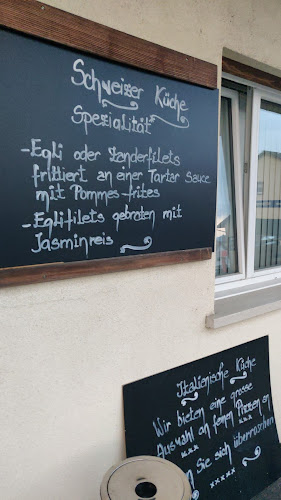 Schweizer Küche
Spezialität
- Egli oder Zanderfilets
frittiert an einer Tartar Sauce
mit Pommes-frites
- Eglifilets gebraten mit
Jasminreis
Italienische Küche
Wir bieten eine grosse
Auswahl an feinen Pizzen an
Sie sich überraschen